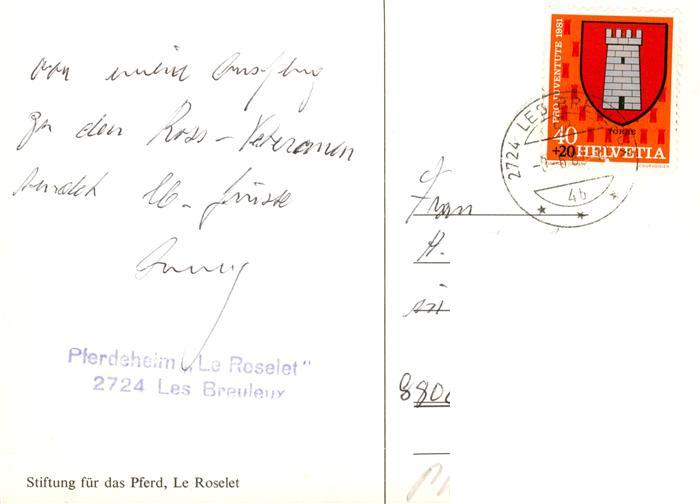 von mein Ausflug
zu den Ross-Veteranen
sendet lb. Grüsse
Pferdeheim „Le Roselet"
2724 Les Breuleux
Stiftung für das Pferd, Le Roselet
PRO JUVENTUTE 1981
40
+20 HELVETIA
2724 LES
4b
Frau
H.
in
880